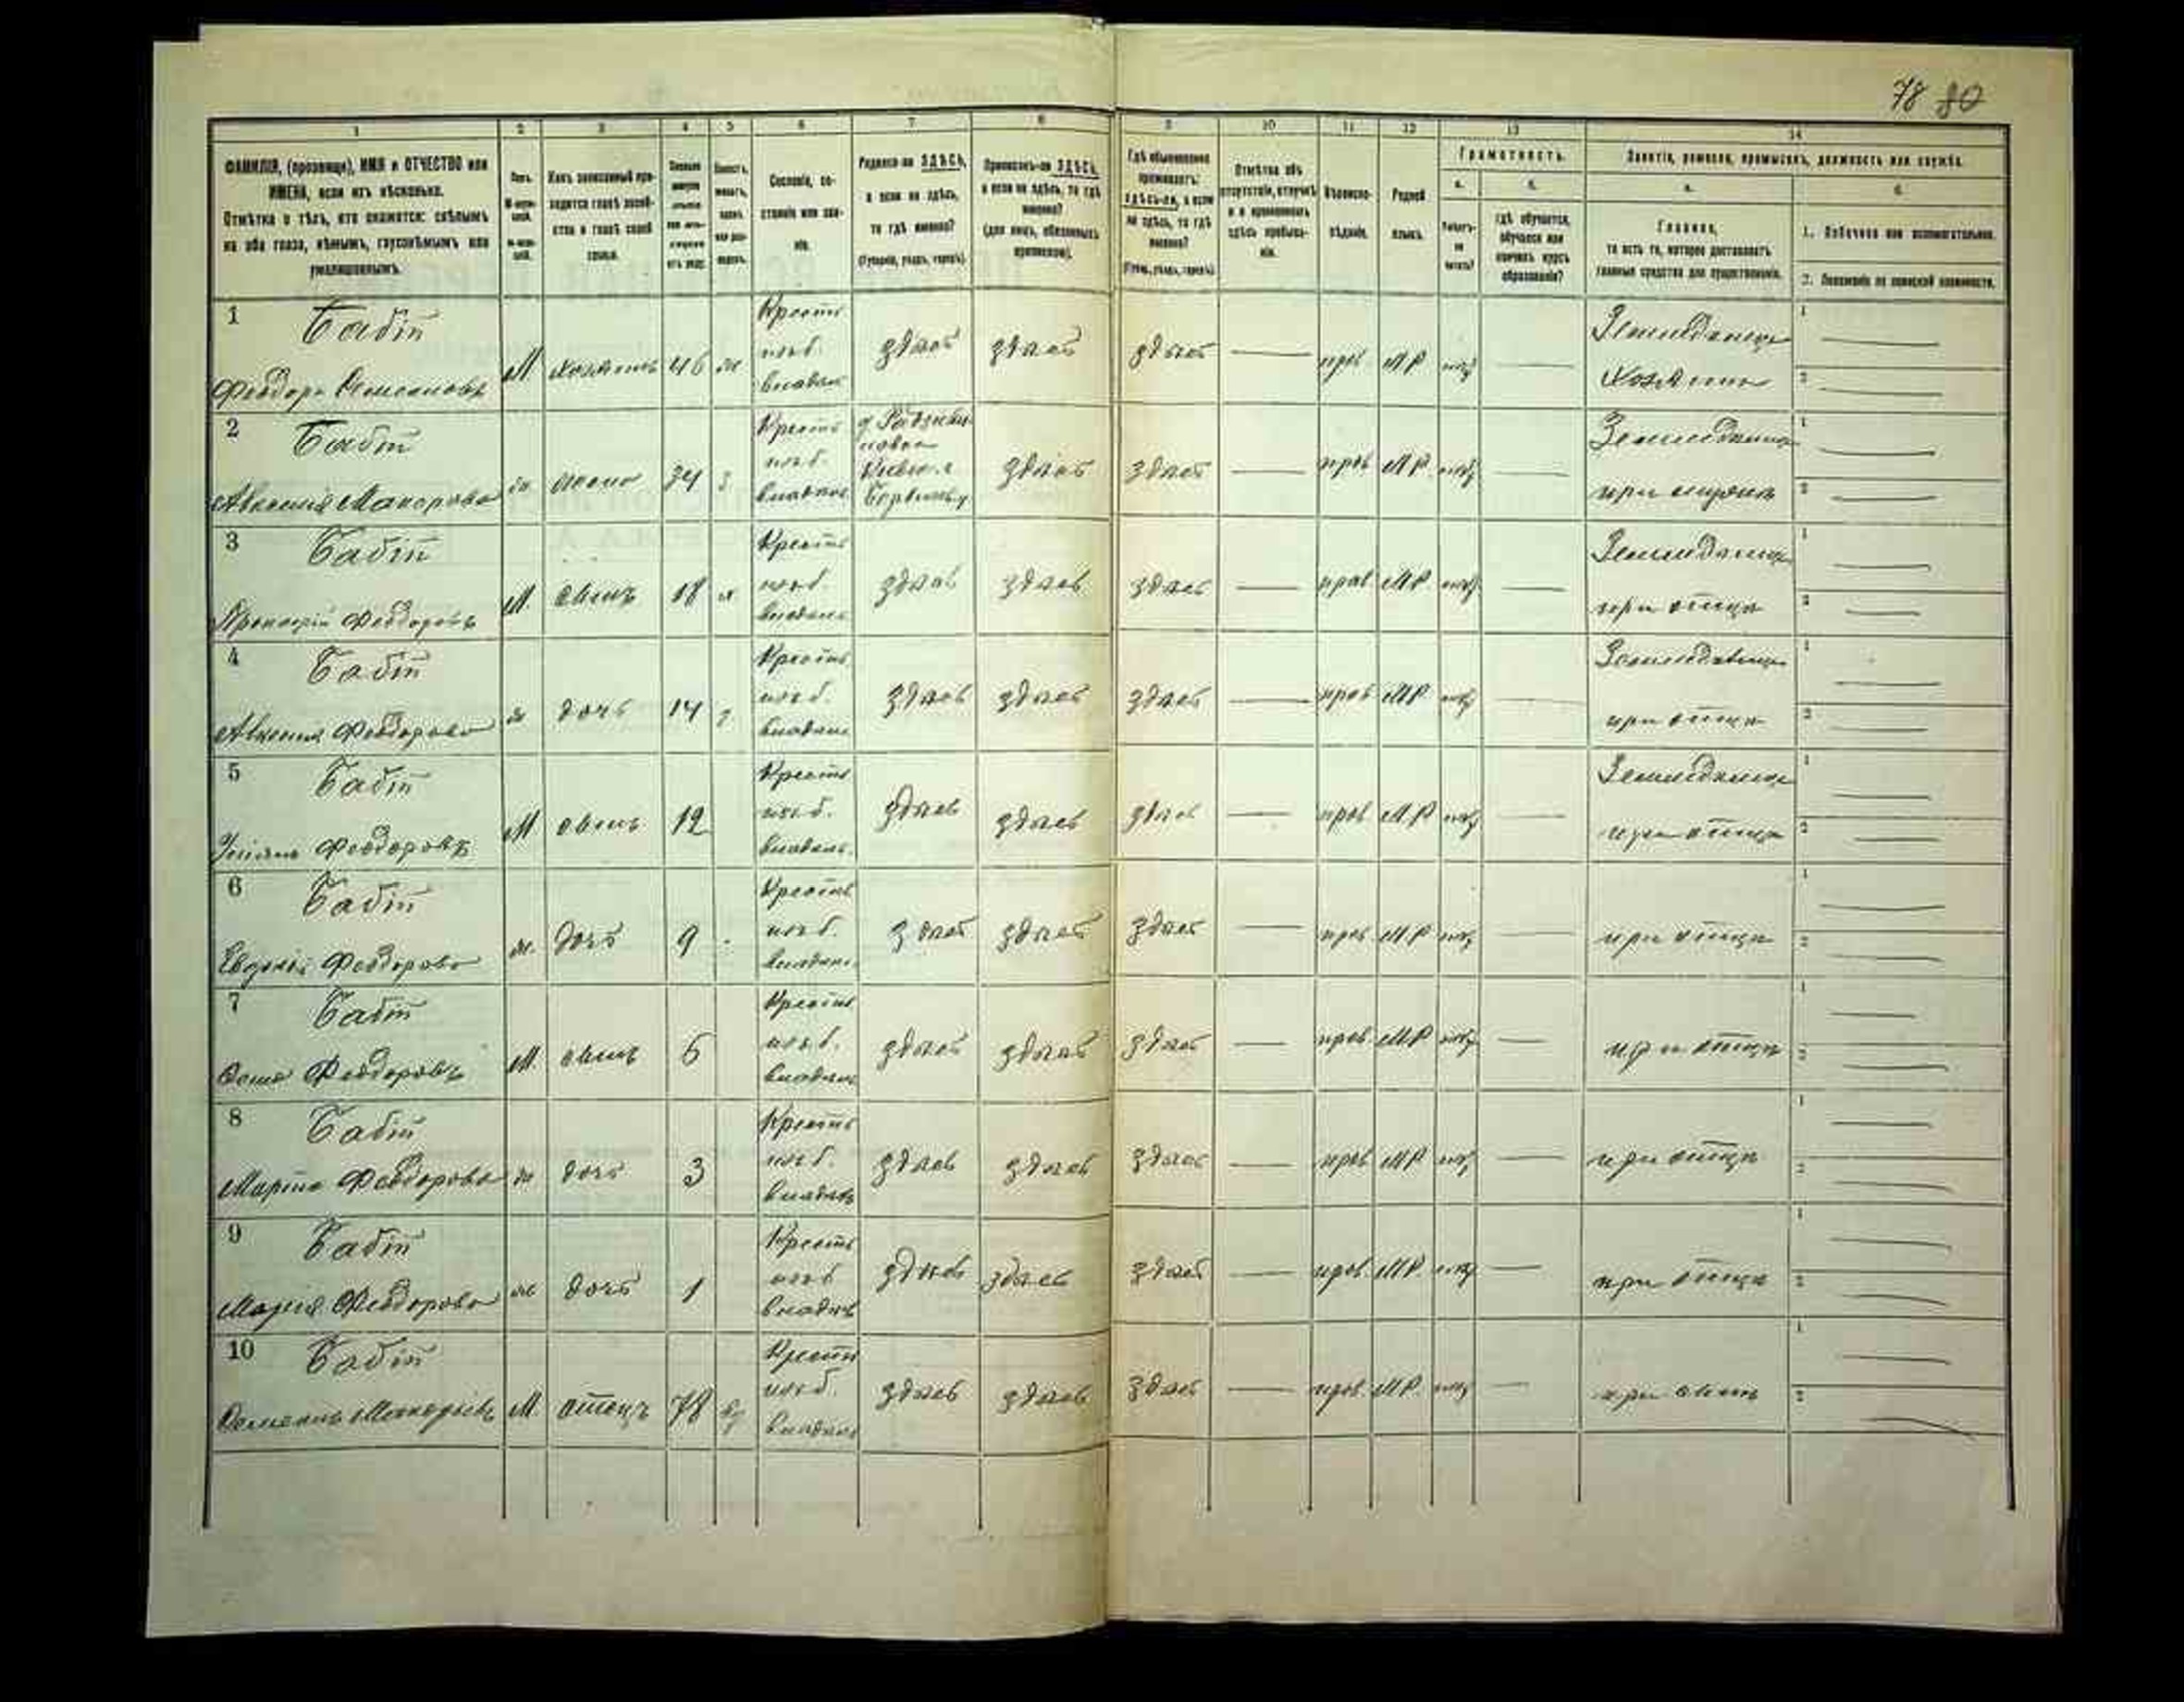 78 80
1 2 3 4 5 6 7 8
9 10 11 12 13 14
ФАМИЛІЯ, (прозвище), ИМЯ и ОТЧЕСТВО или
ИМЕНА, если ихъ нѣсколько.
Отмѣтка о тѣхъ, кто окажется: слѣпымъ
на оба глаза, нѣмымъ, глухонѣмымъ или
умалишеннымъ.
Полъ.
Какъ записанный при-
ходится главѣ хозяй-
ства и главѣ своей
семьи.
Сословіе, со-
стояніе или зва-
ніе.
Родился-ли ЗДѢСЬ,
а если не здѣсь,
то гдѣ именно?
(Губернія, уѣздъ, городъ).
Приписанъ-ли ЗДѢСЬ,
а если не здѣсь, то гдѣ
именно?
(для лицъ, обязанныхъ
припискою).
Гдѣ обыкновенно
проживаетъ:
здѣсь-ли, а если
не здѣсь, то гдѣ
именно?
(Губ., уѣздъ, городъ).
Отмѣтка объ
отсутствіи, отлучкѣ
и о временномъ
здѣсь пребыва-
ніи.
Вѣроиспо-
вѣданіе.
Родной
языкъ.
Грамотность.
а. б.
Умѣетъ-
ли
читать?
Гдѣ обучается,
обучался или
кончилъ курсъ
образованія?
Занятіе, ремесло, промыселъ, должность или служба.
а. б.
Главное,
то есть то, которое доставляетъ
главныя средства для существованія.
1. Побочное или вспомогательное.
2. Положеніе по воинской повинности.
1 Бабій
Феодоръ Семеновъ М хозяинъ 46 ж Крестьян. соб. владѣл. здѣсь здѣсь здѣсь — прав МР нѣтъ — Земледѣлецъ хозяинъ 1 — 2 —
2 Бабій
Авксенія Макарова ж жена 34 Крестьян. соб. владѣл. здѣсь здѣсь — прав МР нѣтъ — Земледѣлецъ при мужѣ 1 — 2 —
3 Бабій
Феодоровъ М. сынъ 18 х Крестьян. соб. владѣл. здѣсь здѣсь здѣсь — прав МР нѣтъ — Земледѣлецъ при отцѣ 1 — 2 —
4 Бабій
Авксенія Феодорова ж дочь 14 Крестьян. соб. владѣл. здѣсь здѣсь здѣсь — прав МР нѣтъ — Земледѣлецъ при отцѣ 1 — 2 —
5 Бабій
Феодоровъ М сынъ 12 Крестьян. соб. владѣл. здѣсь здѣсь здѣсь — прав МР нѣтъ — Земледѣлецъ при отцѣ 1 — 2 —
6 Бабій
Евдокія Феодорова ж. дочь 9 Крестьян. соб. владѣл. здѣсь здѣсь здѣсь — прав МР нѣтъ — при отцѣ 1 — 2 —
7 Бабій
Феодоровъ М. сынъ 6 Крестьян. соб. владѣл. здѣсь здѣсь здѣсь — прав МР нѣтъ — при отцѣ 1 — 2 —
8 Бабій
Марта Феодорова ж дочь 3 Крестьян. соб. владѣл. здѣсь здѣсь здѣсь — прав МР нѣтъ — при отцѣ 1 — 2 —
9 Бабій
Марія Феодорова ж дочь 1 Крестьян. соб. владѣл. здѣсь здѣсь здѣсь — прав МР. нѣтъ — при отцѣ 1 — 2 —
10 Бабій
М отецъ 78 вд Крестьян. соб. владѣл. здѣсь здѣсь здѣсь — прав МР. нѣтъ — при сынѣ 1 — 2 —